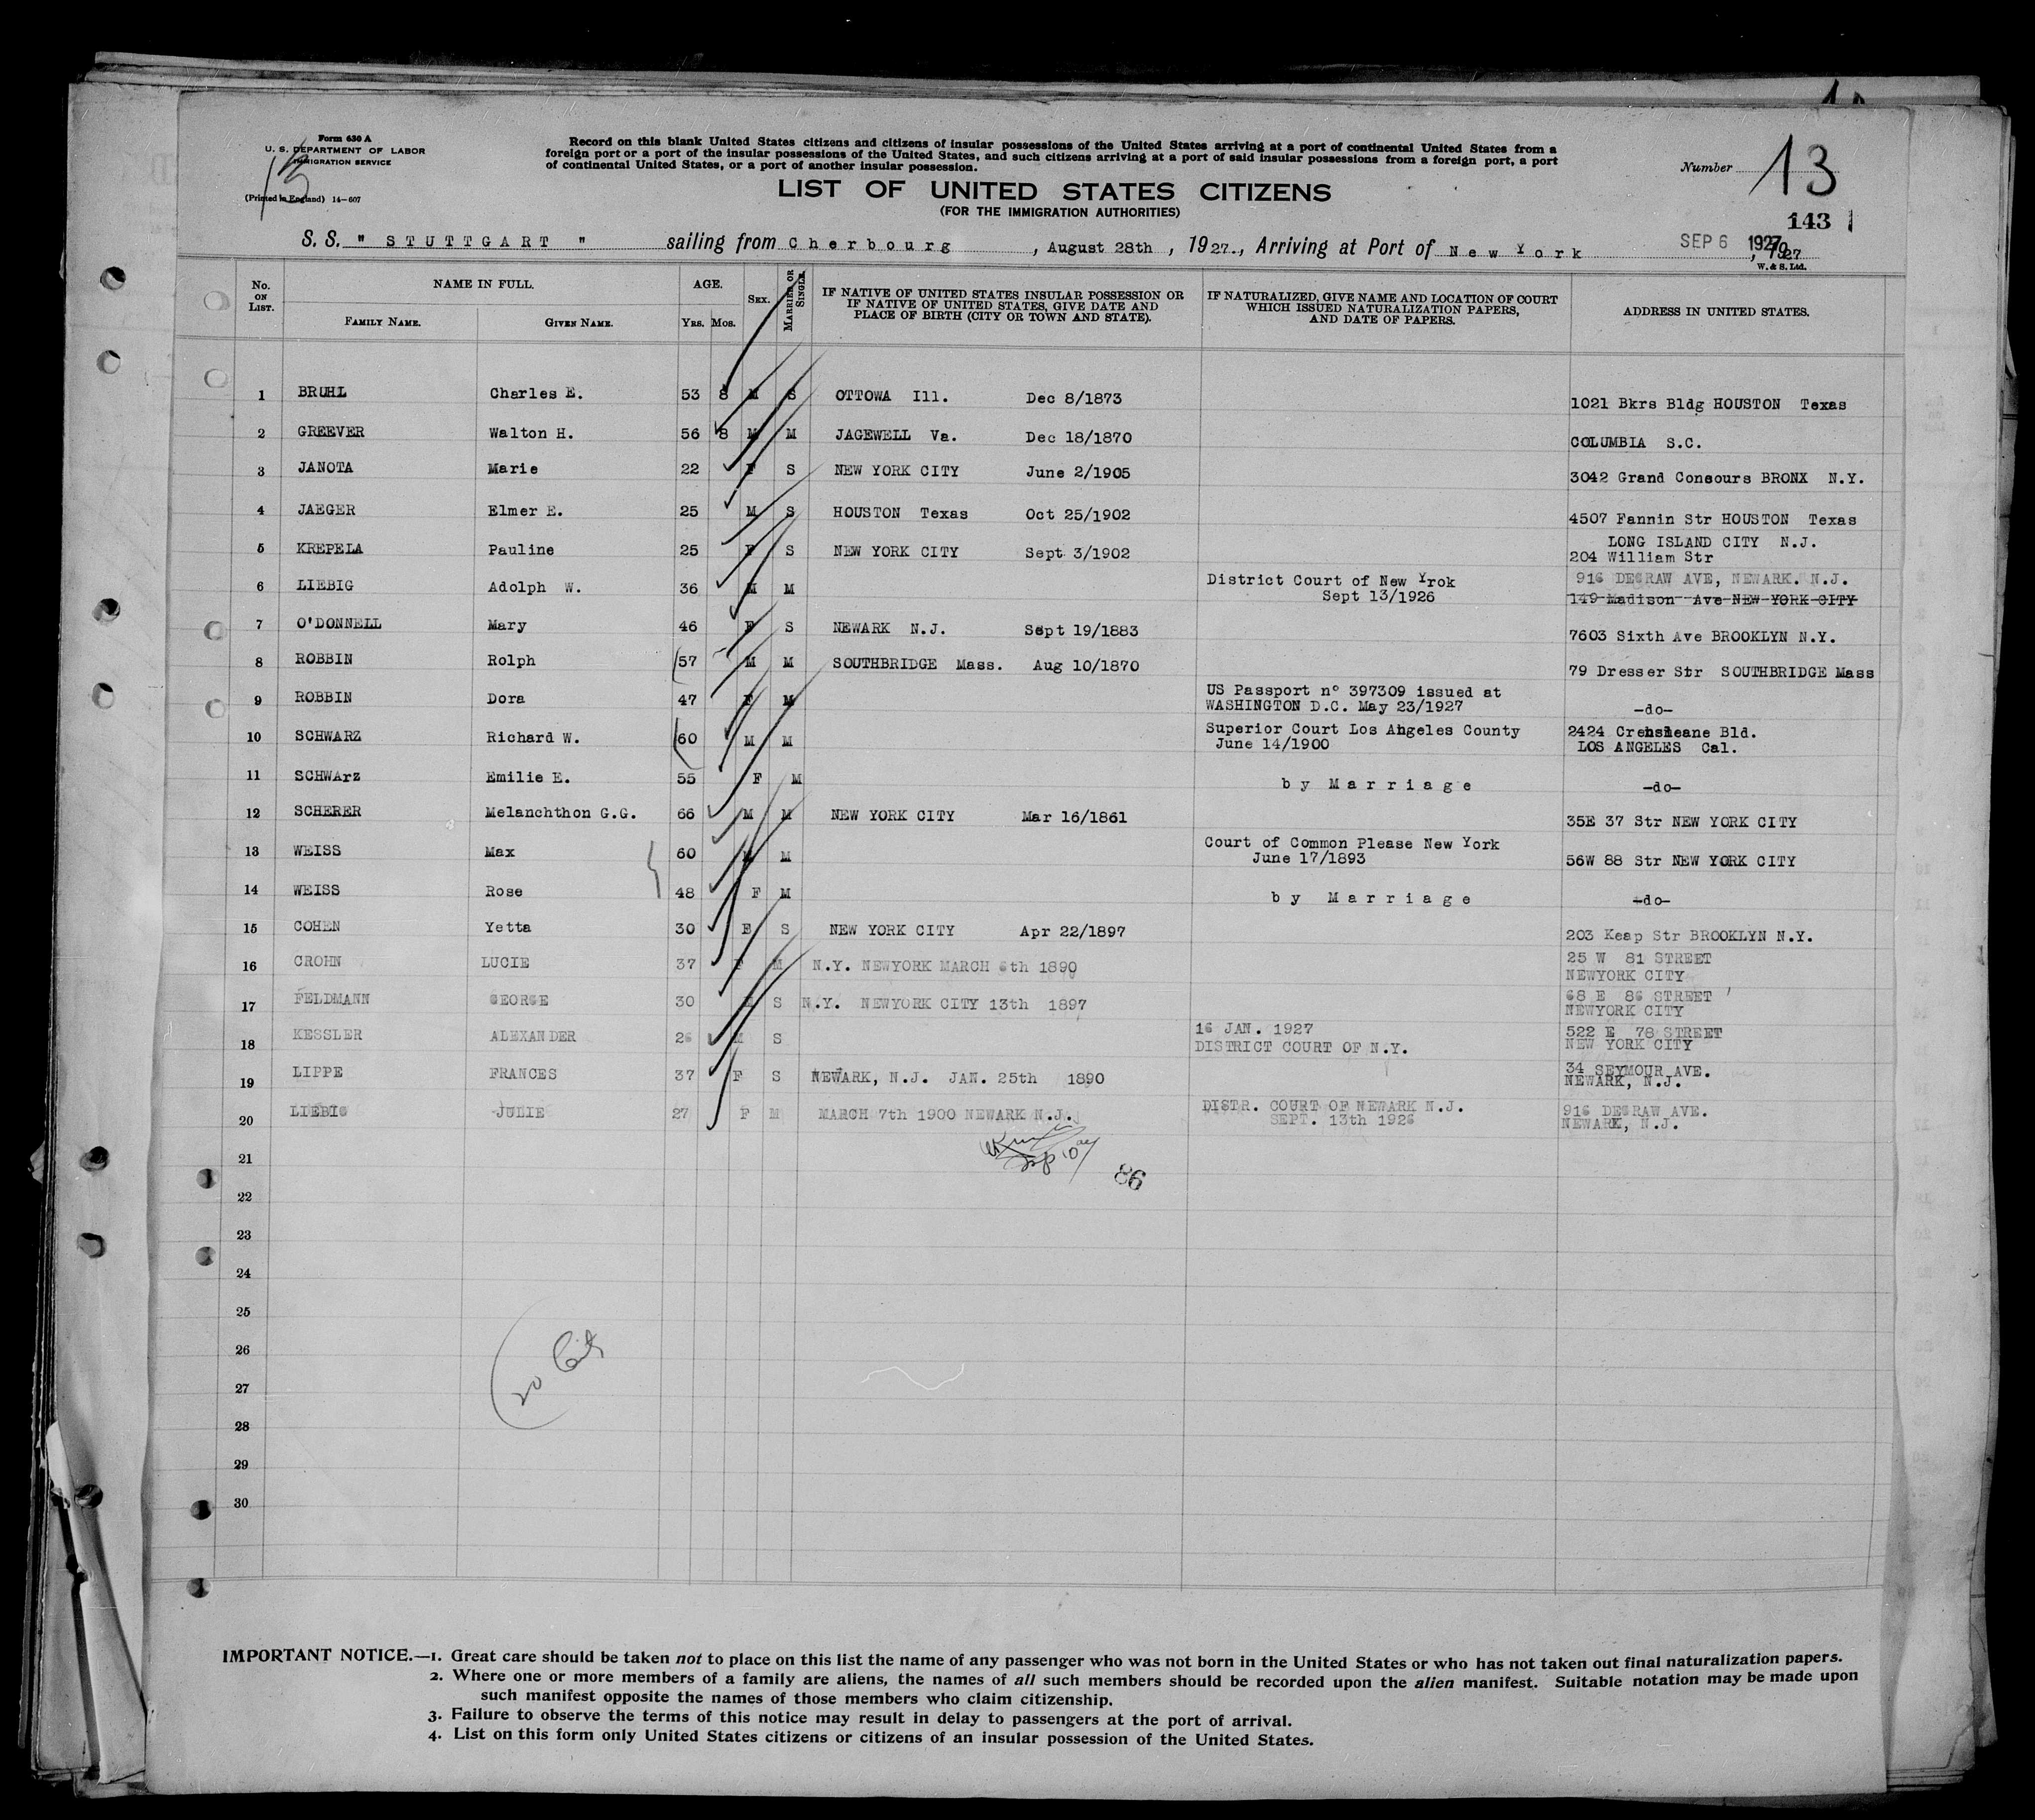 Form 630 A
U. S. DEPARTMENT OF LABOR
IMMIGRATION SERVICE
13
(Printed in England) 14—607
Record on this blank United States citizens and citizens of insular possessions of the United States arriving at a port of continental United States from a
foreign port or a port of the insular possessions of the United States, and such citizens arriving at a port of said insular possessions from a foreign port, a port
of continental United States, or a port of another insular possession.
LIST OF UNITED STATES CITIZENS
(FOR THE IMMIGRATION AUTHORITIES)
Number 13
143
S. S. " STUTTGART " sailing from Cherbourg , August 28th , 1927., Arriving at Port of New York SEP 6 1927, 1927
W. & S. Ltd.
No. ON LIST. NAME IN FULL. AGE. SEX. MARRIED OR SINGLE. IF NATIVE OF UNITED STATES INSULAR POSSESSION OR IF NATIVE OF UNITED STATES, GIVE DATE AND PLACE OF BIRTH (CITY OR TOWN AND STATE). IF NATURALIZED, GIVE NAME AND LOCATION OF COURT WHICH ISSUED NATURALIZATION PAPERS, AND DATE OF PAPERS. ADDRESS IN UNITED STATES.
FAMILY NAME. GIVEN NAME. YRS. MOS.
1 BRUHL Charles E. 53 8 M S OTTOWA Ill. Dec 8/1873 1021 Bkrs Bldg HOUSTON Texas
2 GREEVER Walton H. 56 8 M M JAGEWELL Va. Dec 18/1870 COLUMBIA S.C.
3 JANOTA Marie 22 F S NEW YORK CITY June 2/1905 3042 Grand Consours BRONX N.Y.
4 JAEGER Elmer E. 25 M S HOUSTON Texas Oct 25/1902 4507 Fannin Str HOUSTON Texas
5 KREPELA Pauline 25 F S NEW YORK CITY Sept 3/1902 LONG ISLAND CITY N.J.
204 William Str
6 LIEBIG Adolph W. 36 M M District Court of New Yrok 916 DEGRAW AVE, NEWARK. N.J.
Sept 13/1926 149 Madison Ave NEW YORK CITY
7 O'DONNELL Mary 46 F S NEWARK N.J. Sept 19/1883 7603 Sixth Ave BROOKLYN N.Y.
8 ROBBIN Rolph 57 M M SOUTHBRIDGE Mass. Aug 10/1870 79 Dresser Str SOUTHBRIDGE Mass
9 ROBBIN Dora 47 F M US Passport n° 397309 issued at
WASHINGTON D.C. May 23/1927 -do-
10 SCHWARZ Richard W. 60 M M Superior Court Los Angeles County 2424 Bld.
June 14/1900 LOS ANGELES Cal.
11 SCHWArz Emilie E. 55 F M by Marriage -do-
12 SCHERER Melanchthon G.G. 66 M M NEW YORK CITY Mar 16/1861 35E 37 Str NEW YORK CITY
13 WEISS Max 60 M M Court of Common Please New York
June 17/1893 56W 88 Str NEW YORK CITY
14 WEISS Rose 48 F M by Marriage -do-
15 COHEN Yetta 30 F S NEW YORK CITY Apr 22/1897 203 Keap Str BROOKLYN N.Y.
16 CROHN LUCIE 37 F M N.Y. NEWYORK MARCH 6th 1890 25 W 81 STREET
NEWYORK CITY
17 FELDMANN GEORGE 30 M S N.Y. NEWYORK CITY 13th 1897 68 E 86 STREET
NEWYORK CITY
18 KESSLER ALEXANDER 26 M S 16 JAN. 1927 522 E 78 STREET
DISTRICT COURT OF N.Y. NEW YORK CITY
19 LIPPE FRANCES 37 F S NEWARK, N.J. JAN. 25th 1890 34 SEYMOUR AVE.
NEWARK, N.J.
20 LIEBIG JULIE 27 F M MARCH 7th 1900 NEWARK N.J. DISTR. COURT OF NEWARK N.J. 916 DEGRAW AVE.
SEPT. 13th 1926 NEWARK, N.J.
21
86
22
23
24
25
26
20 Cit
27
28
29
30
IMPORTANT NOTICE.—1. Great care should be taken not to place on this list the name of any passenger who was not born in the United States or who has not taken out final naturalization papers.
2. Where one or more members of a family are aliens, the names of all such members should be recorded upon the alien manifest. Suitable notation may be made upon
such manifest opposite the names of those members who claim citizenship.
3. Failure to observe the terms of this notice may result in delay to passengers at the port of arrival.
4. List on this form only United States citizens or citizens of an insular possession of the United States.